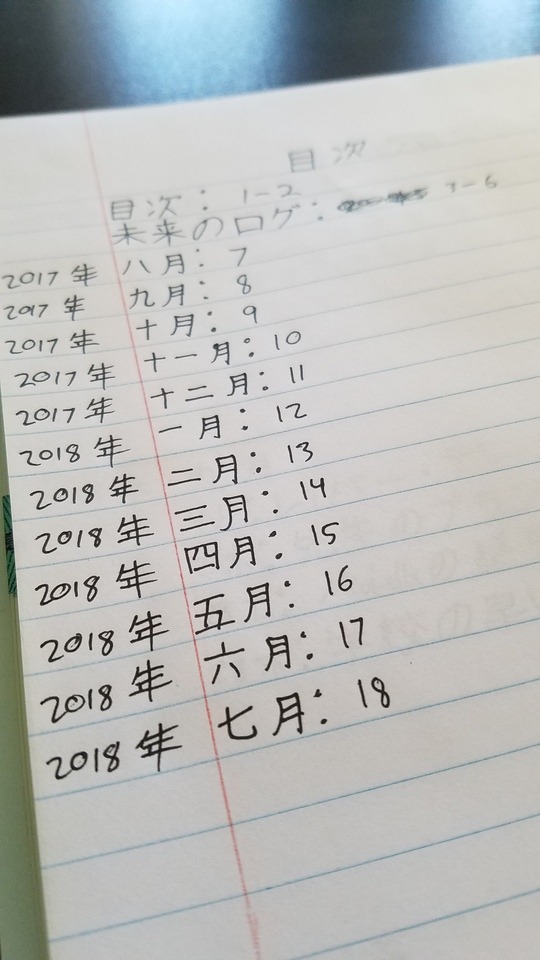 目次
目次: 1-2
未来のログ: 3-6
2017年 八月: 7
2017年 九月: 8
2017年 十月: 9
2017年 十一月: 10
2017年 十二月: 11
2018年 一月: 12
2018年 二月: 13
2018年 三月: 14
2018年 四月: 15
2018年 五月: 16
2018年 六月: 17
2018年 七月: 18